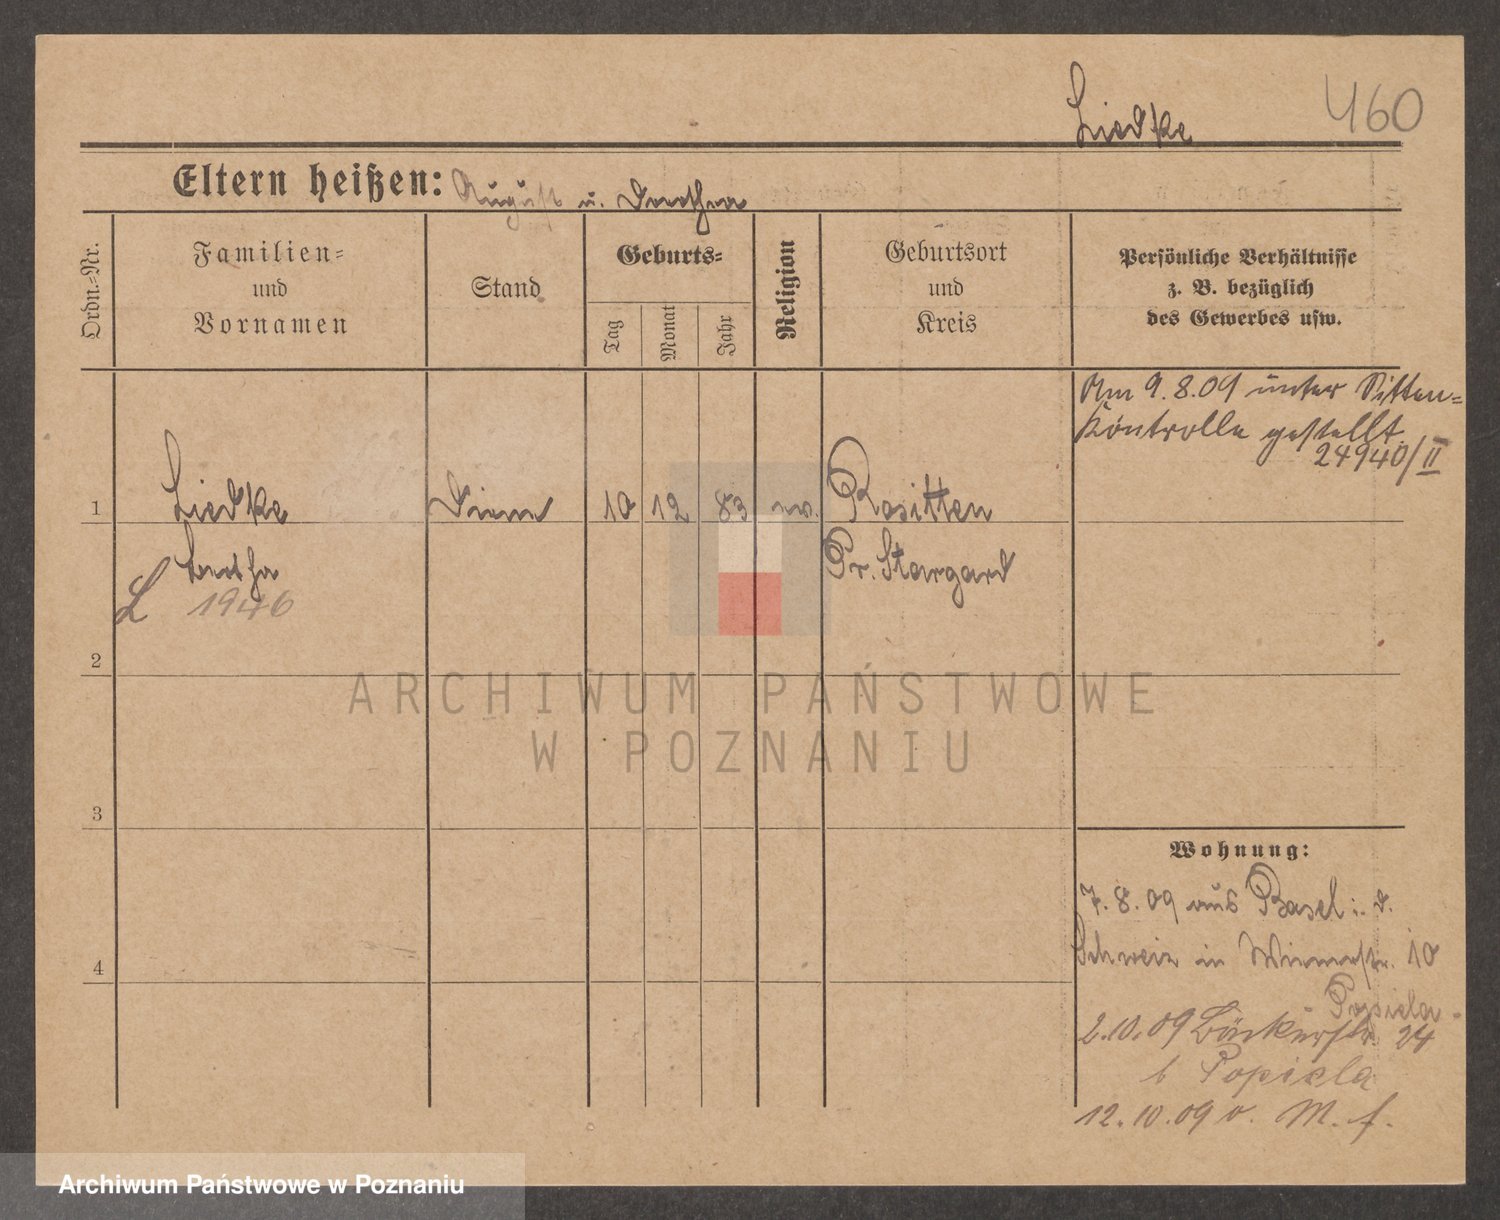 Liedke
460
Eltern heißen: August u. Dorothea
Ordn.-Nr.
Familien-
und
Vornamen
Stand
Geburts-
Tag
Monat
Jahr
Religion
Geburtsort
und
Kreis
Persönliche Verhältnisse
z. B. bezüglich
des Gewerbes usw.
Am 9.8.09 unter Sitten-
kontrolle gestellt.
24940/II
1
Liedke
Dirne
10
12
83
ev.
Rositten
Bertha
Pr. Stargard
L 1946
2
ARCHIWUM PAŃSTWOWE
W POZNANIU
3
Wohnung:
7.8.09 aus Basel i. d.
Schweiz in 10
4
Popiela
2.10.09 Bäckerstr. 24
b Popiela
12.10.09 v. M. f.
Archiwum Państwowe w Poznaniu